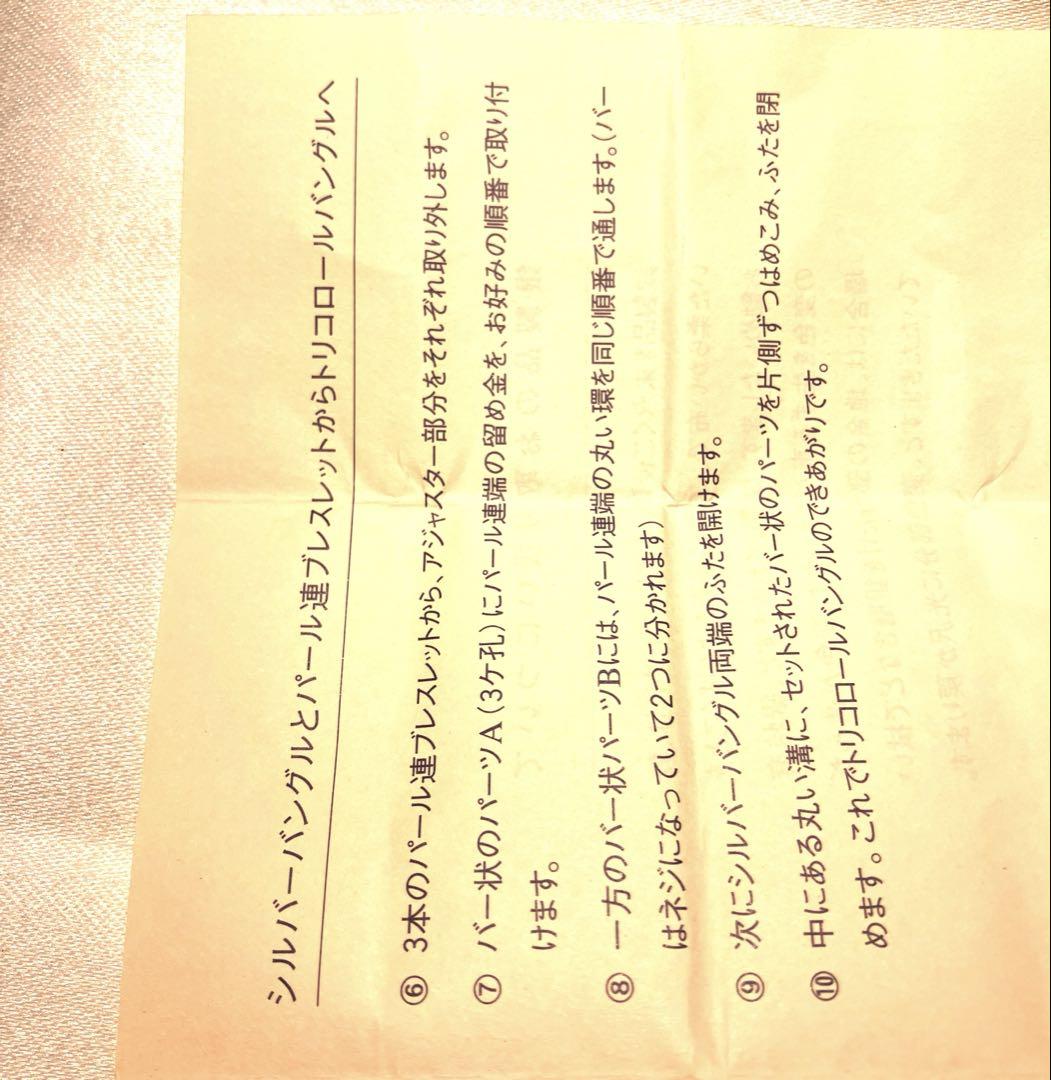 シルバーバングルとパール連ブレスレットからトリコロールバングルへ
⑥ 3本のパール連ブレスレットから、アジャスター部分をそれぞれ取り外します。
⑦ バー状のパーツA（3ケ孔）にパール連端の留め金を、お好みの順番で取り付
けます。
⑧ 一方のバー状パーツBには、パール連端の丸い環を同じ順番で通します。（バー
はネジになっていて2つに分かれます）
⑨ 次にシルバーバングル両端のふたを開けます。
⑩ 中にある丸い溝に、セットされたバー状のパーツを片側ずつはめこみ、ふたを閉
めます。これでトリコロールバングルのできあがりです。